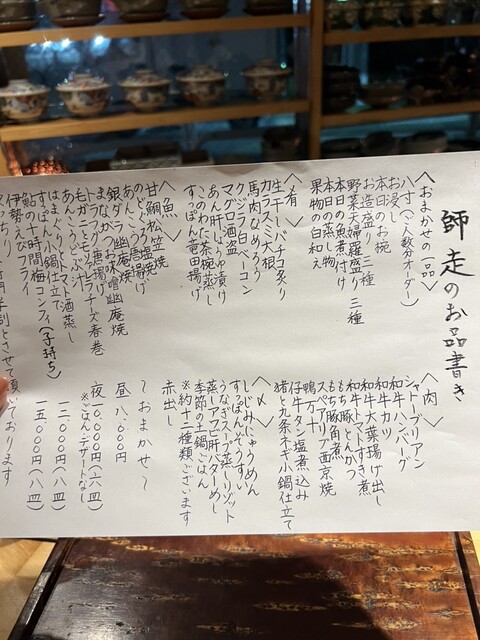 師走のお品書き
〈おまかせの一品〉
八寸(ご人数分オーダー)
お浸し
本日のお椀
お造盛り 三種
野菜天婦羅盛り 三種
本日の魚煮付け
本日の蒸し物
果物の白和え
〈肴〉
生千バチコ炙り
カラスミ大根
馬肉なめろう
クジラ白ベーコン
マグロ酒盗
あん肝しょうゆ漬け
このわた茶碗蒸し
すっぽん苔田揚げ
〈魚〉
甘鯛松笠焼
のどぐろ塩焼
あんこう唐揚げ
銀ダラ幽庵焼
まながつお味噌幽庵焼
トラフグ唐揚げ
毛ガニとカラチーズ春巻
あんこうどぶ汁
はまぐりとトマト酒蒸し
すっぽん小鍋仕立て
鮎の十時間梅コンフィ(子持ち)
伊勢えびフライ
〈肉〉
シャトーブリアン
和牛ハンバーグ
和牛カツ
和牛大葉揚げ出し
和牛トマトすき煮
もち豚とんかつ
もち豚角煮
スペアリブ西京焼
鴨カツ
仔牛タン塩煮込み
猪と九条ネギ小鍋仕立て
〈〆〉
しじみにゅうめん
すっぽんぞうすい
うなぎスープ蒸しリゾット
蒸しアワビ肝バターめし
季節の土鍋ごはん
※約十二種類ございます
赤出し
〜おまかせ〜
昼 八、〇〇〇円
夜 一〇、〇〇〇円(六皿)
※ごはん・デザートなし
一二、〇〇〇円(八皿)
一五、〇〇〇円(八皿)